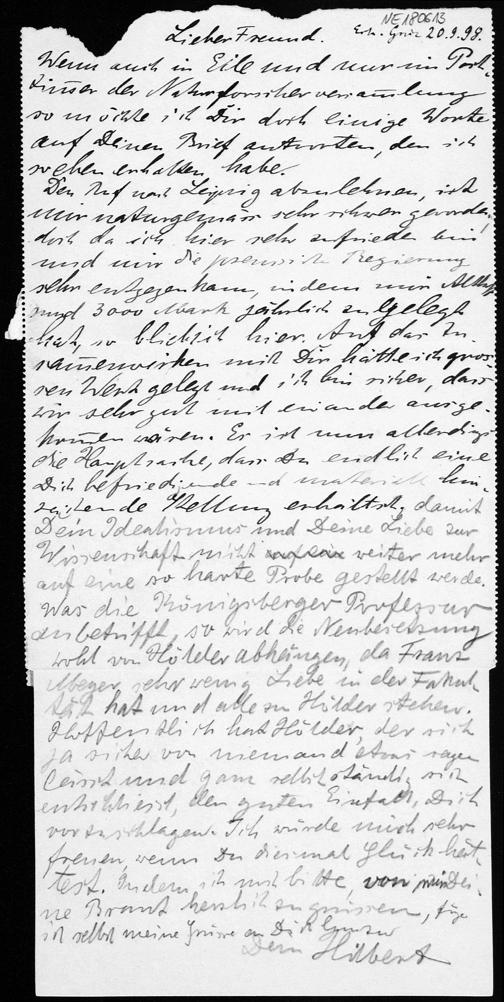 NE180613
Lieber Freund.
20.9.98.
Wenn auch in Eile und nur im Post-
zim̅er der Naturforscherversam̅lung
so möchte ich Dir doch einige Worte
auf Deinen Brief antworten, den ich
soeben erhalten habe.
Den Ruf nach Leipzig abzulehnen, ist
mir naturgemäss sehr schwer geworden,
doch da ich hier sehr zufrieden bin
und mir die preussische Regierung
sehr entgegenkam, indem mir Althoff
rund 3000 Mark jährlich zugelegt
hat, so blieb ich hier. Auf das Zu-
sam̅enwirken mit Dir hätte ich gros-
sen Wert gelegt und ich bin sicher, dass
wir sehr gut mit einander ausge-
kom̅en wären. Es ist nun allerdings
die Hauptsache, dass Du endlich eine
Dich befriedigende und materiell hin-
reichende Stellung erhältst, damit
Dein Idealismus und Deine Liebe zur
Wissenschaft nicht weiter mehr
auf eine so harte Probe gestellt werde.
Was die Königsberger Professur
anbetrifft, so wird die Neubesetzung
wohl von Hölder abhängen, da Franz
Meyer sehr wenig Liebe in der Fakul-
tät hat und alle zu Hölder stehen.
Hoffentlich hat Hölder, der sich
ja sicher von niemand etwas sagen
lässt und ganz selbstständig sich
entschliesst, den guten Einfall, Dich
vorzuschlagen. Ich würde mich sehr
freuen, wenn Du diesmal Glück hät-
test. Indem ich noch bitte, von mir Dei-
ne Braut herzlich zu grüssen, füge
ich selbst meine Grüsse an Dich hinzu
Dein Hilbert